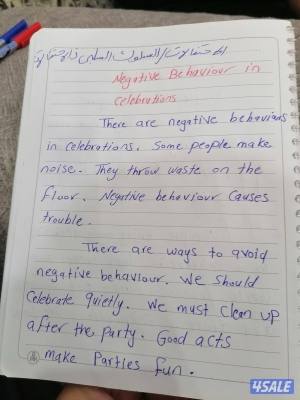 الاحتفالات / السلوك السلبي في الاحتفالات
Negative Behaviour in
Celebrations
There are negative behaviours
in celebrations. Some people make
noise. They throw waste on the
floor. Negative behaviour causes
trouble.
There are ways to avoid
negative behaviour. We should
Celebrate quietly. We must clean up
after the party. Good acts
make Parties fun.
4SALE